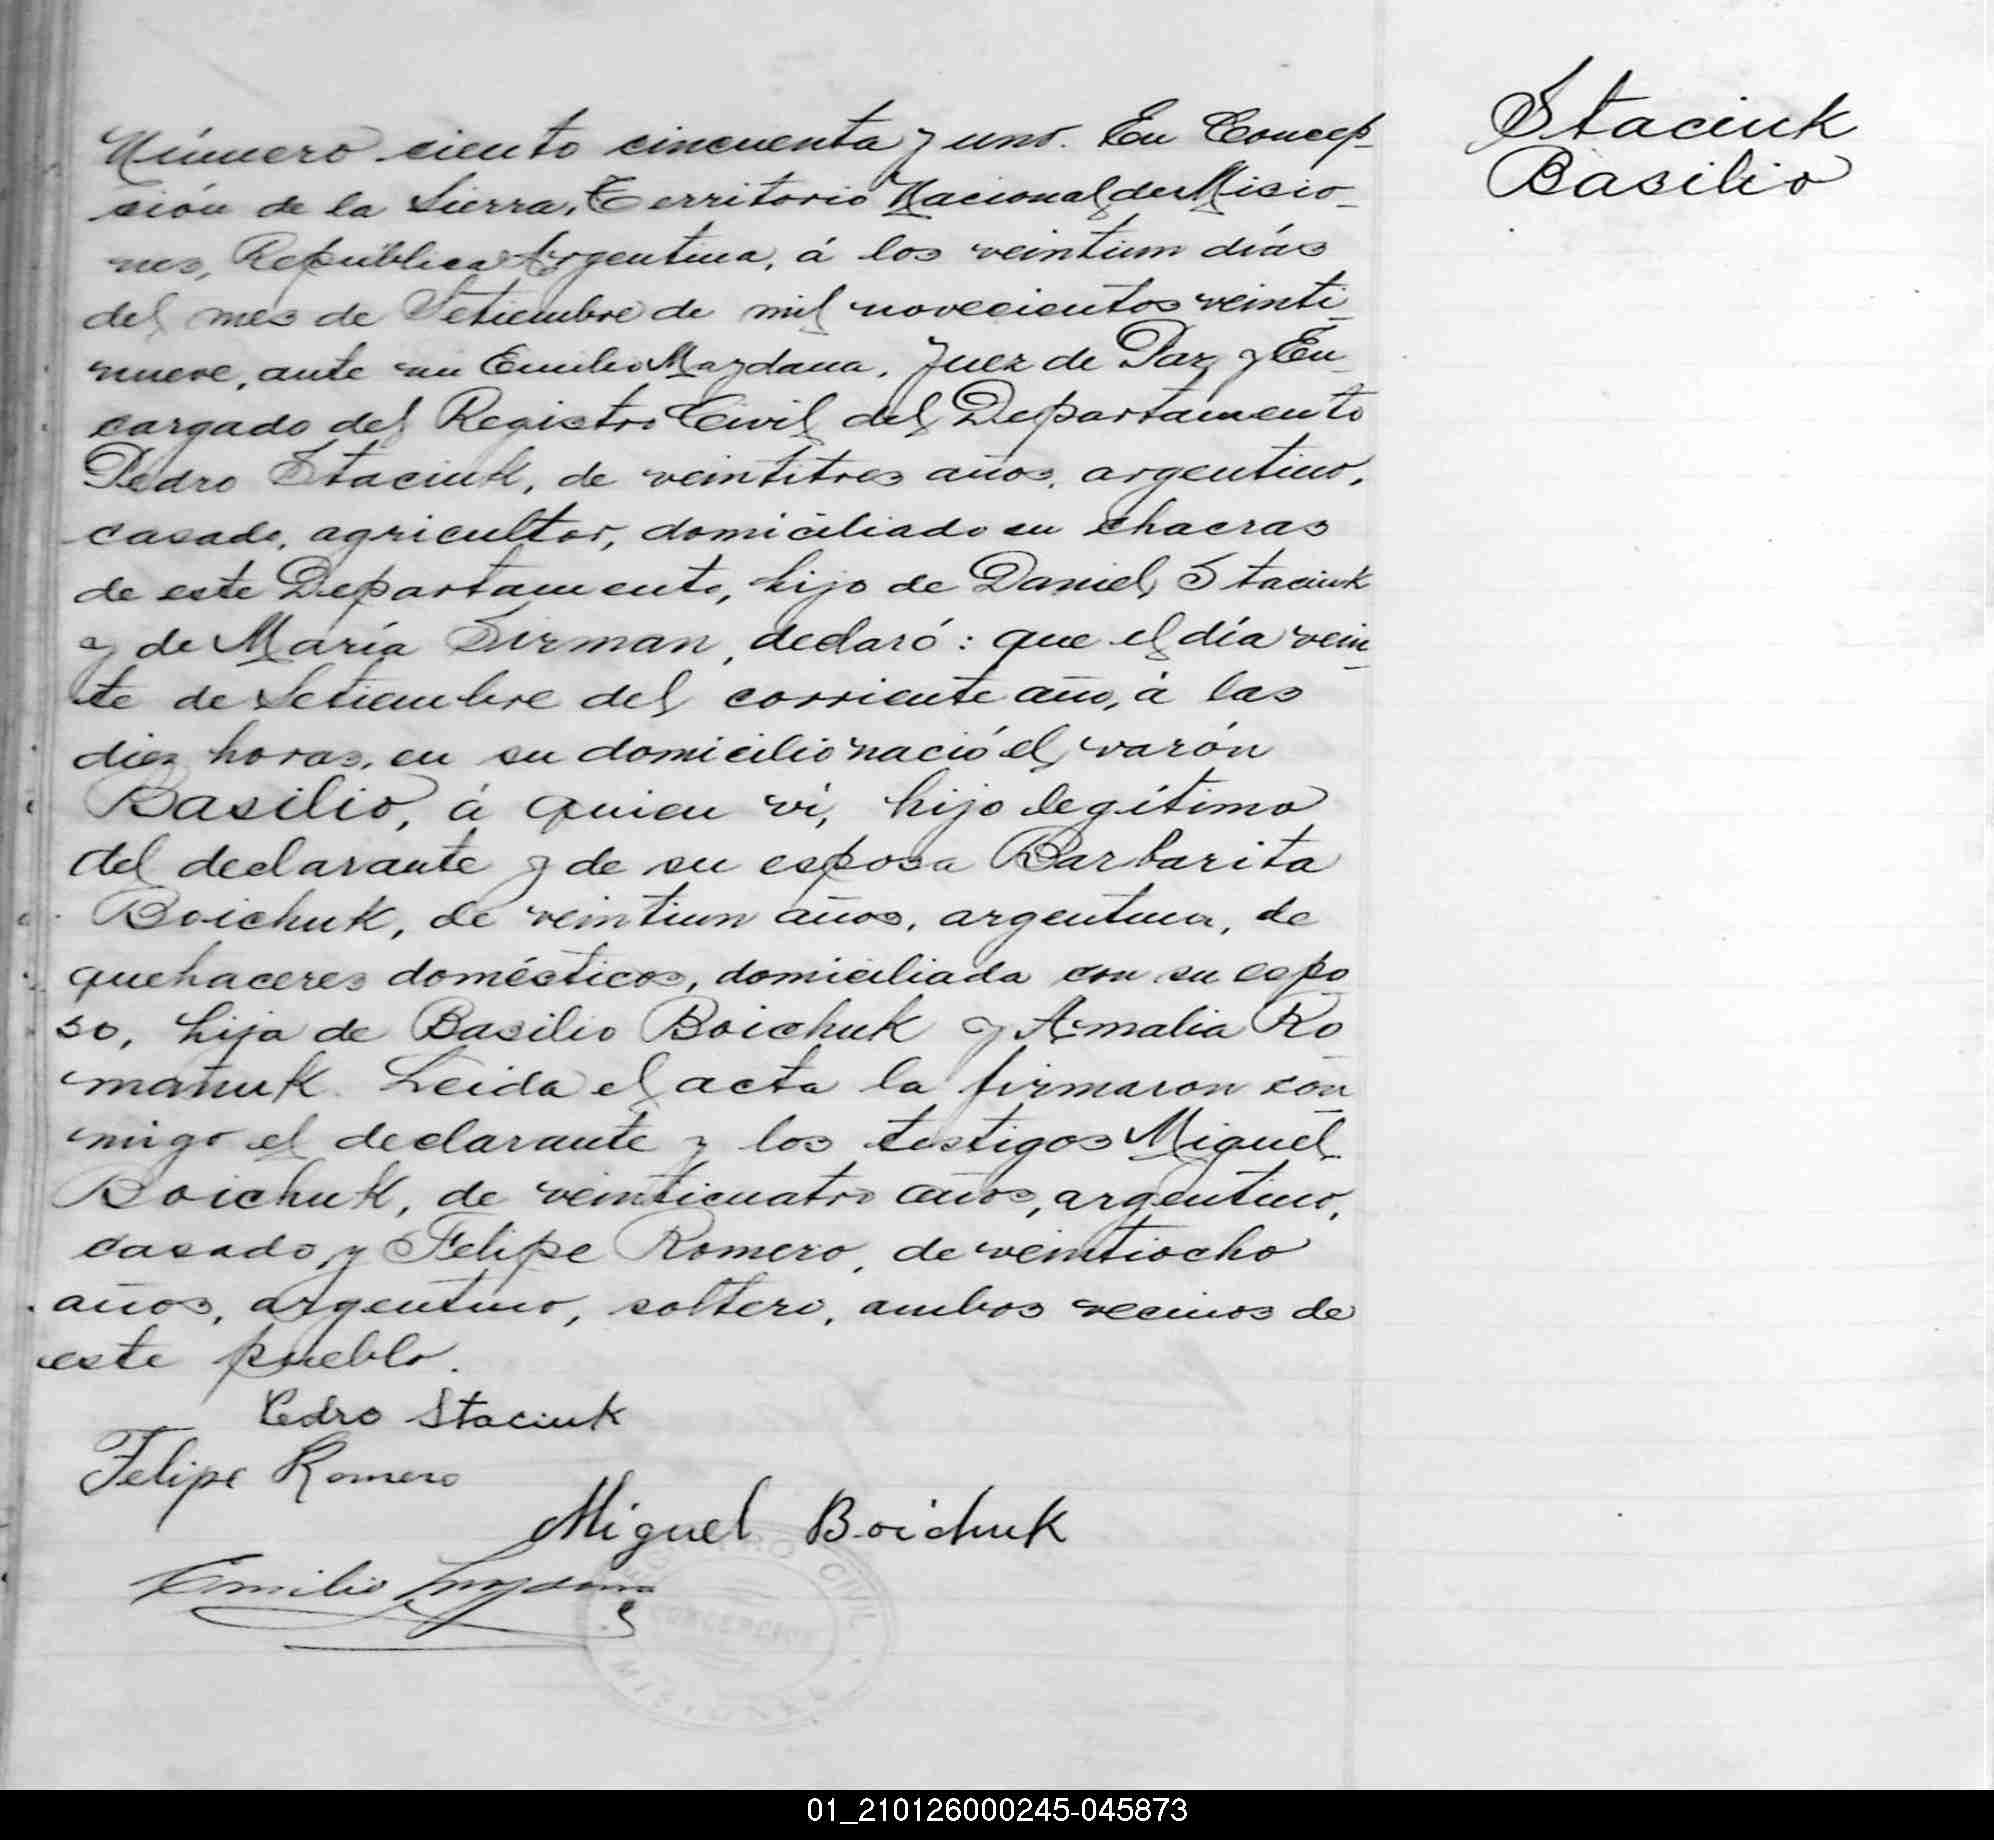 Staciuk
Basilio
Número ciento cincuenta y uno. En Concep-
ción de la Sierra, Territorio Nacional de Misio-
nes, República Argentina, á los veintiun días
del mes de Setiembre de mil novecientos veinti-
nueve, ante mi Emilio Maydana, Juez de Paz y En-
cargado del Registro Civil del Departamento
Pedro Staciuk, de veintitres años, argentino,
casado, agricultor, domiciliado en chacras
de este Departamento, hijo de Daniel Staciuk
y de María Sirman, declaró: que el día vein-
te de Setiembre del corriente año, á las
diez horas, en su domicilio nació el varón
Basilio, á quien vi, hijo legítimo
del declarante y de su esposa Barbarita
Boichuk, de veintiun años, argentina, de
quehaceres domésticos, domiciliada con su espo-
so, hija de Basilio Boichuk y Amalia Ro-
mañuk. Leida el acta la firmaron con-
migo el declarante y los testigos Miguel
Boichuk, de veinticuatro años, argentino,
casado y Felipe Romero, de veintiocho
años, argentino, soltero, ambos vecinos de
este pueblo.
Pedro Staciuk
Felipe Romero
Miguel Boichuk
Emilio Maydana
REGISTRO CIVIL
CONCEPCION
01_210126000245-045873